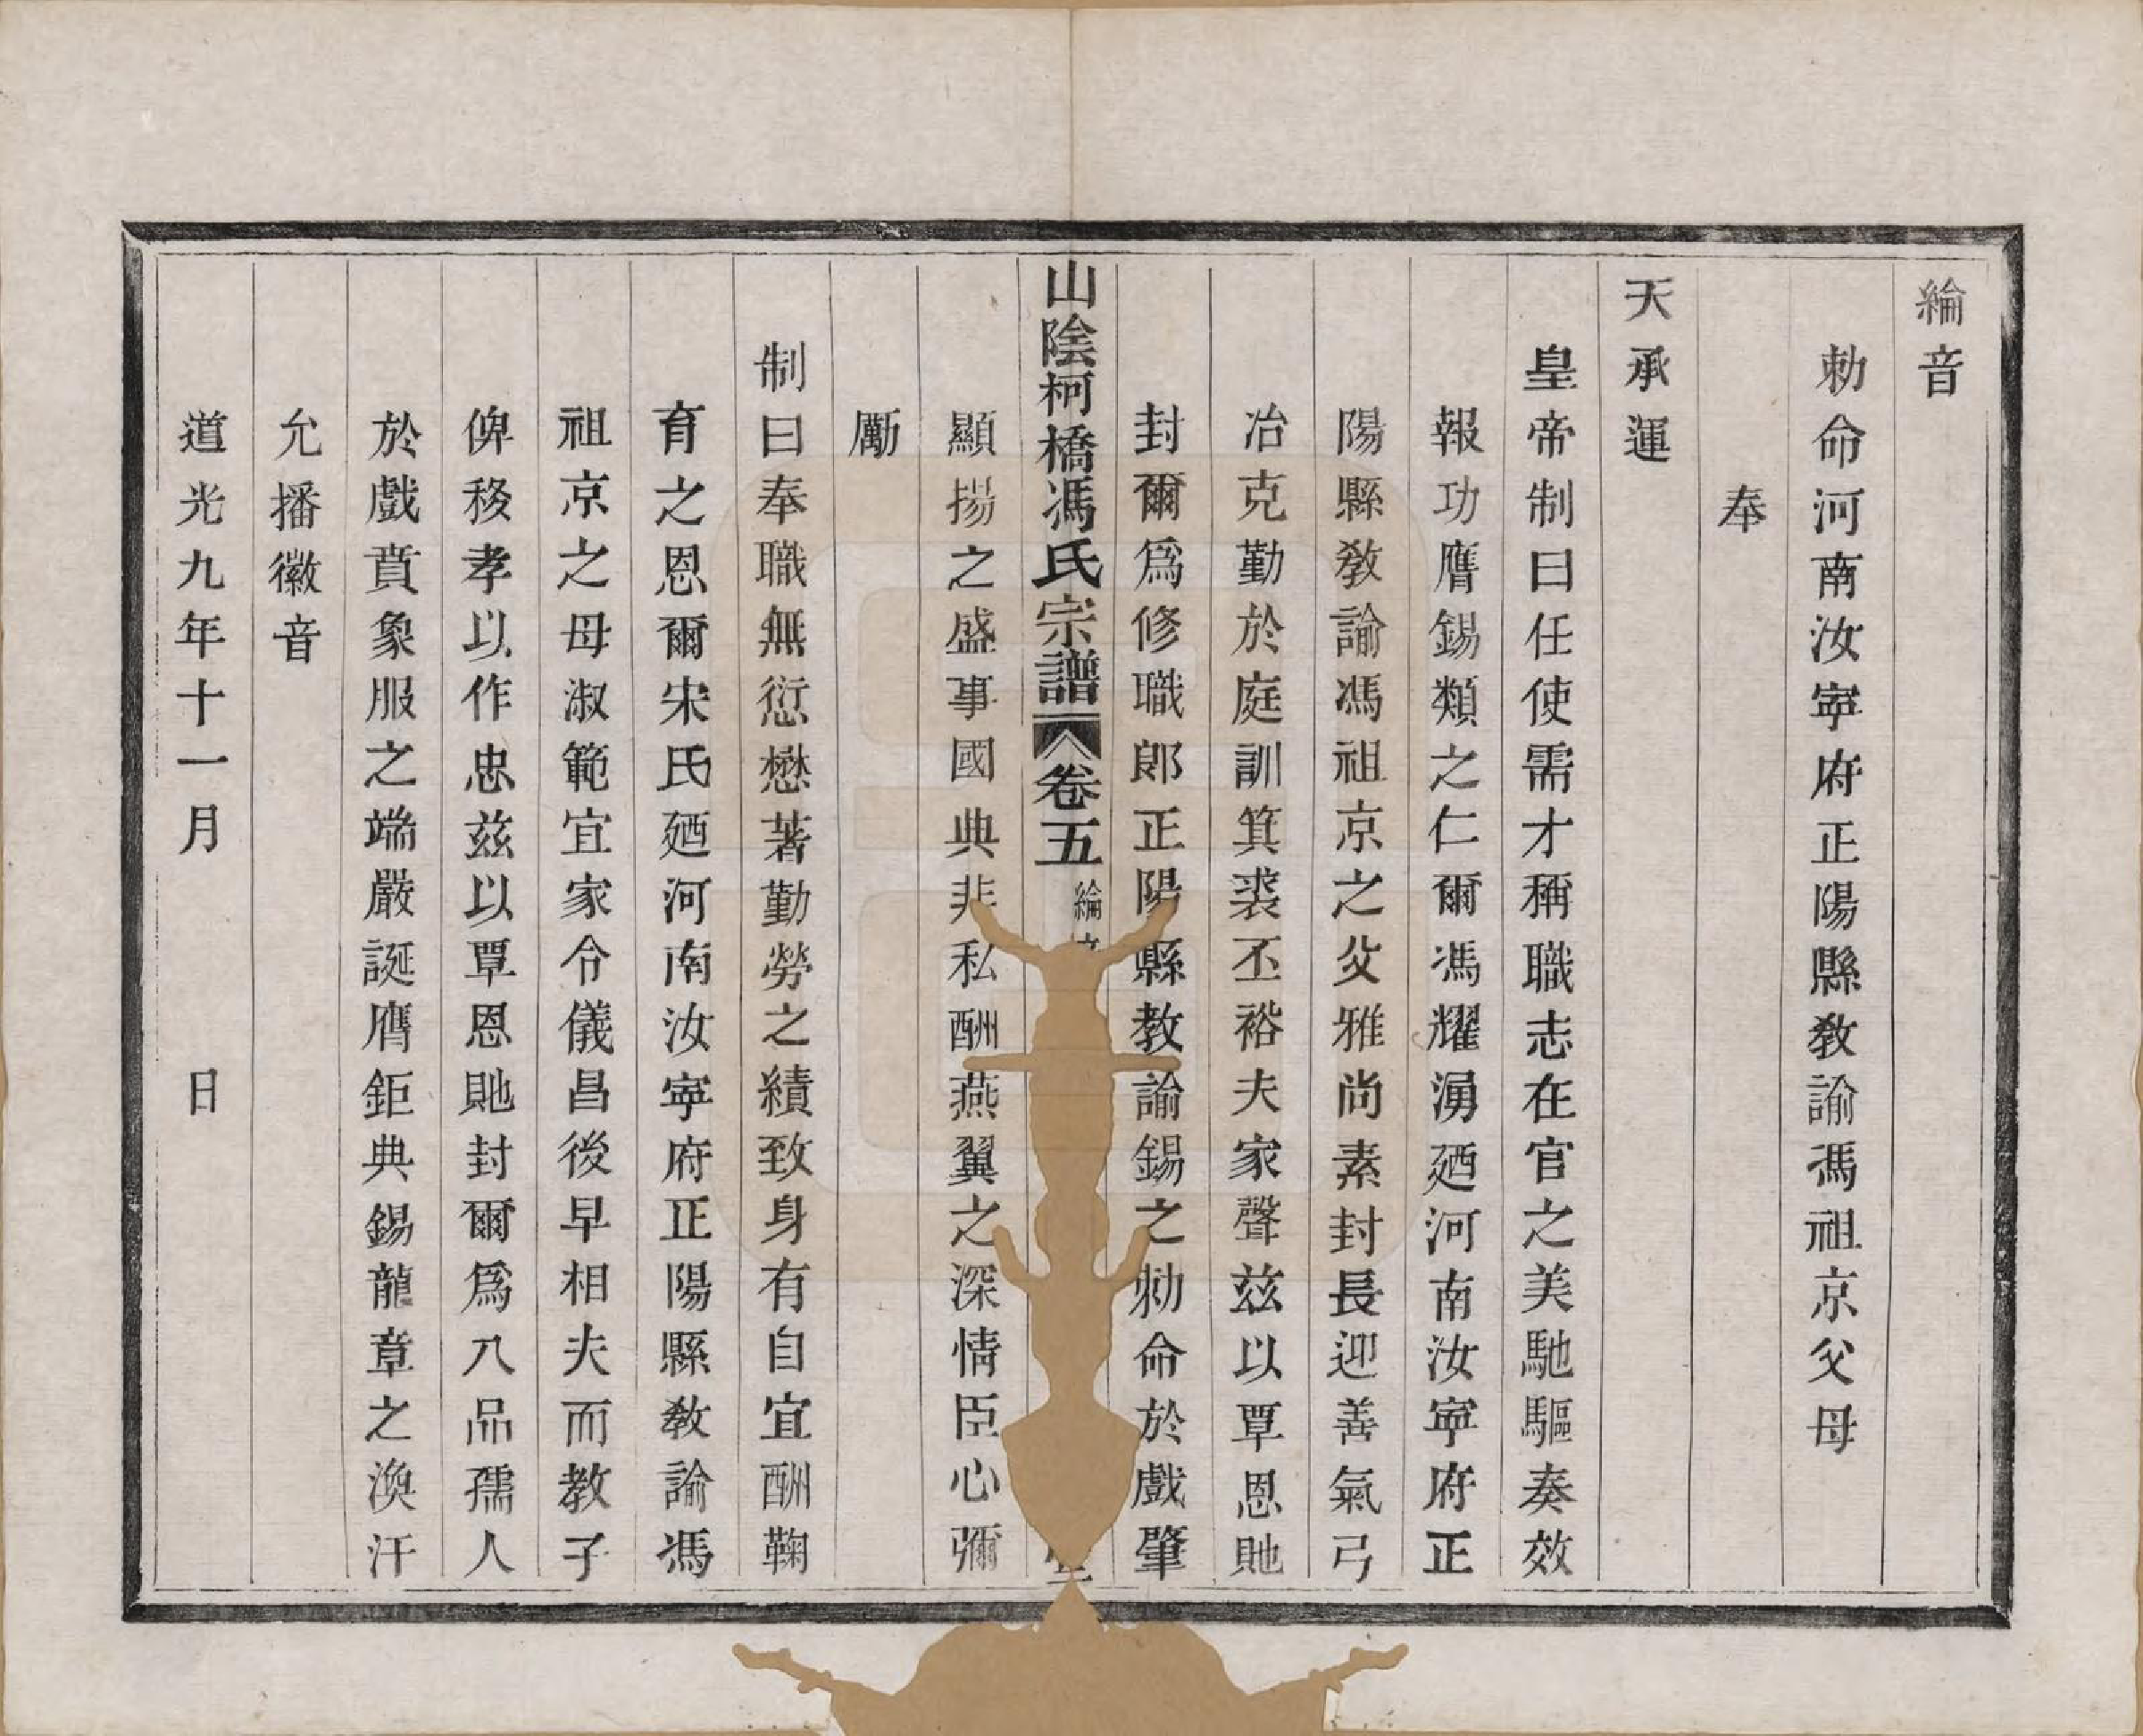 綸音
勅命河南汝寧府正陽縣教諭馮祖京父母
奉
天承運
皇帝制曰任使需才稱職志在官之美馳驅奏效
報功膺錫類之仁爾馮耀湧廼河南汝寧府正
陽縣敎諭馮祖京之父雅尚素封長迎善氣弓
冶克勤於庭訓箕裘丕裕夫家聲兹以覃恩貤
封爾爲修職郎正陽縣教諭錫之勅命於戲肇
山陰柯橋馮氏宗譜 卷五 綸
顯揚之盛事國典非私酬燕翼之深情臣心彌
勵
制曰奉職無愆懋著勤勞之績致身有自宜酬鞠
育之恩爾宋氏廼河南汝寧府正陽縣敎諭馮
祖京之母淑範宜家令儀昌後早相夫而教子
俾移孝以作忠兹以覃恩貤封爾爲八品孺人
於戲賁象服之端嚴誕膺鉅典錫龍章之渙汗
允播徽音
道光九年十一月 日